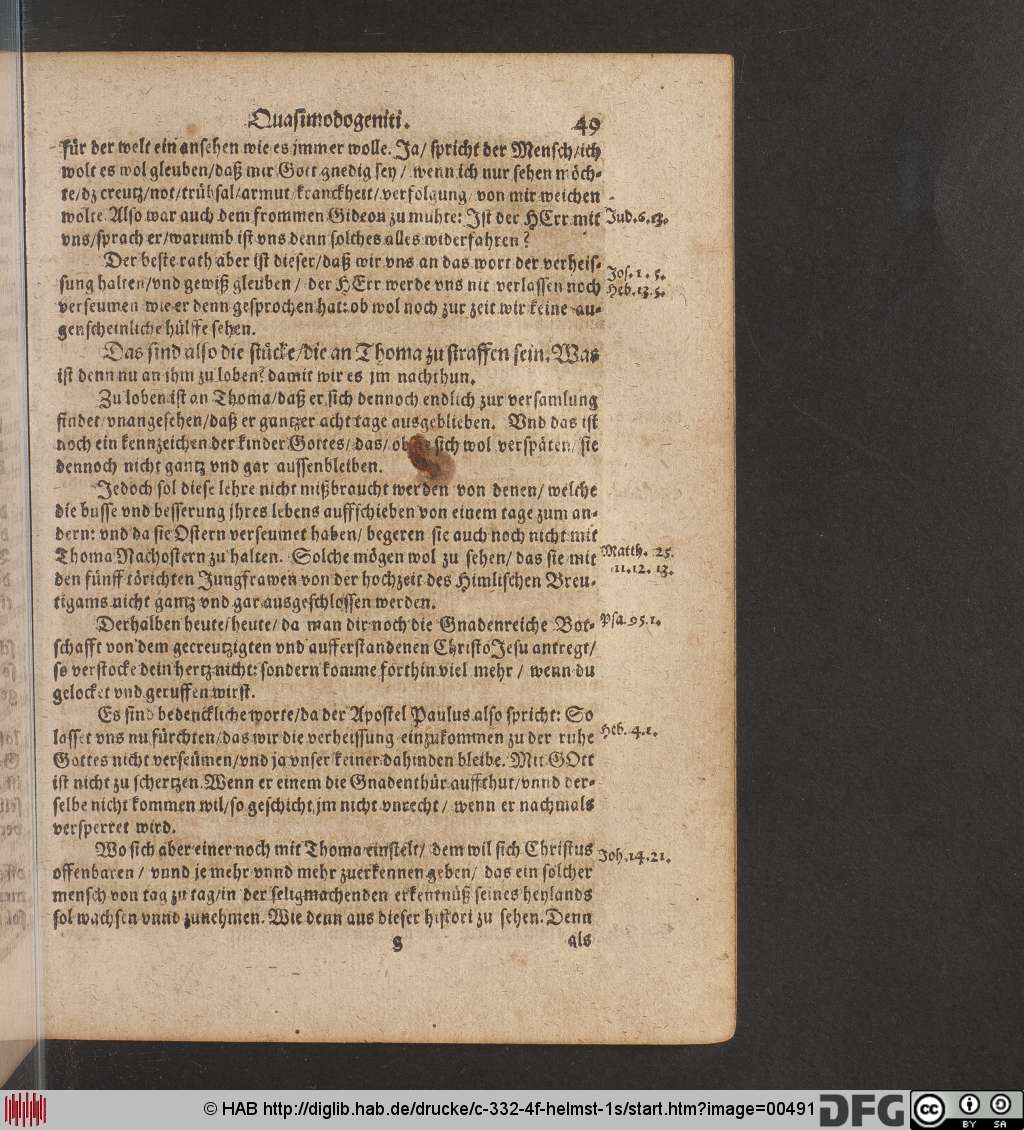 Quasimodogeniti. 49
für der welt ein ansehen wie es jmmer wolle. Ja/ spricht der Mensch/ich
wolt es wol gleuben/daß mir Gott gnedig sey/ wenn ich nur sehen möch-
te/dz creutz/not/trübsal/armut/kranckheit/verfolgung/ von mir weichen
wolte. Also war auch dem frommen Gideon zu muhte: Jst der HErr mit Jud.6.13.
vns/sprach er/warumb ist vns denn solches alles widerfahren?
Der beste rath aber ist dieser/daß wir vns an das wort der verheis- Jos.1.5.
sung halten/vnd gewiß gleuben/ der HErr werde vns nit verlassen noch Heb.13.5.
verseumen wie er denn gesprochen hat: ob wol noch zur zeit wir keine au-
genscheinliche hülffe sehen.
Das sind also die stücke/die an Thoma zu straffen sein. Was
ist denn nu an ihm zu loben? damit wir es jm nachthun.
Zu loben ist an Thoma/daß er sich dennoch endlich zur versamlung
findet/vnangesehen/daß er gantzer acht tage ausgeblieben. Vnd das ist
noch ein kennzeichen der kinder Gottes/ das/ ob sie sich wol verspäten/ sie
dennoch nicht gantz vnd gar aussenbleiben.
Jedoch sol diese lehre nicht mißbraucht werden von denen/ welche
die busse vnd besserung jhres lebens auffschieben von einem tage zum an-
dern: vnd da sie Ostern verseumet haben/ begeren sie auch noch nicht mit
Thoma Nachostern zu halten. Solche mögen wol zu sehen/ das sie mit Matth. 25.
den fünff törichten Jungfrawen von der hochzeit des Himlischen Breu- 11.12.13.
tigams nicht gantz vnd gar ausgeschlossen werden.
Derhalben heute/heute/ da man dir noch die Gnadenreiche Bot- Psa.95.1.
schafft von dem gecreutzigten vnd aufferstandenen Christo Jesu antregt/
so verstocke dein hertz nicht: sondern komme forthin viel mehr/ wenn du
gelocket vnd geruffen wirst.
Es sind bedenckliche worte/da der Apostel Paulus also spricht: So
lasset vns nu fürchten/das wir die verheissung einzukommen zu der ruhe Heb. 4.1.
Gottes nicht verseümen/vnd ja vnser keiner dahinden bleibe. Mit GOtt
ist nicht zu schertzen. Wenn er einem die Gnadenthür auffthut/vnnd der-
selbe nicht kommen wil/so geschicht jm nicht vnrecht/ wenn er nachmals
versperret wird.
Wo sich aber einer noch mit Thoma einstelt/ dem wil sich Christus Joh.14.21.
offenbaren/ vnnd je mehr vnnd mehr zuerkennen geben/ das ein solcher
mensch von tag zu tag/in der seligmachenden erkentnüß seines heylands
sol wachsen vnnd zunehmen. Wie denn aus dieser histori zu sehen. Denn
g als
© HAB http://diglib.hab.de/drucke/c-332-4f-helmst-1s/start.htm?image=00491 DFG cc BY SA